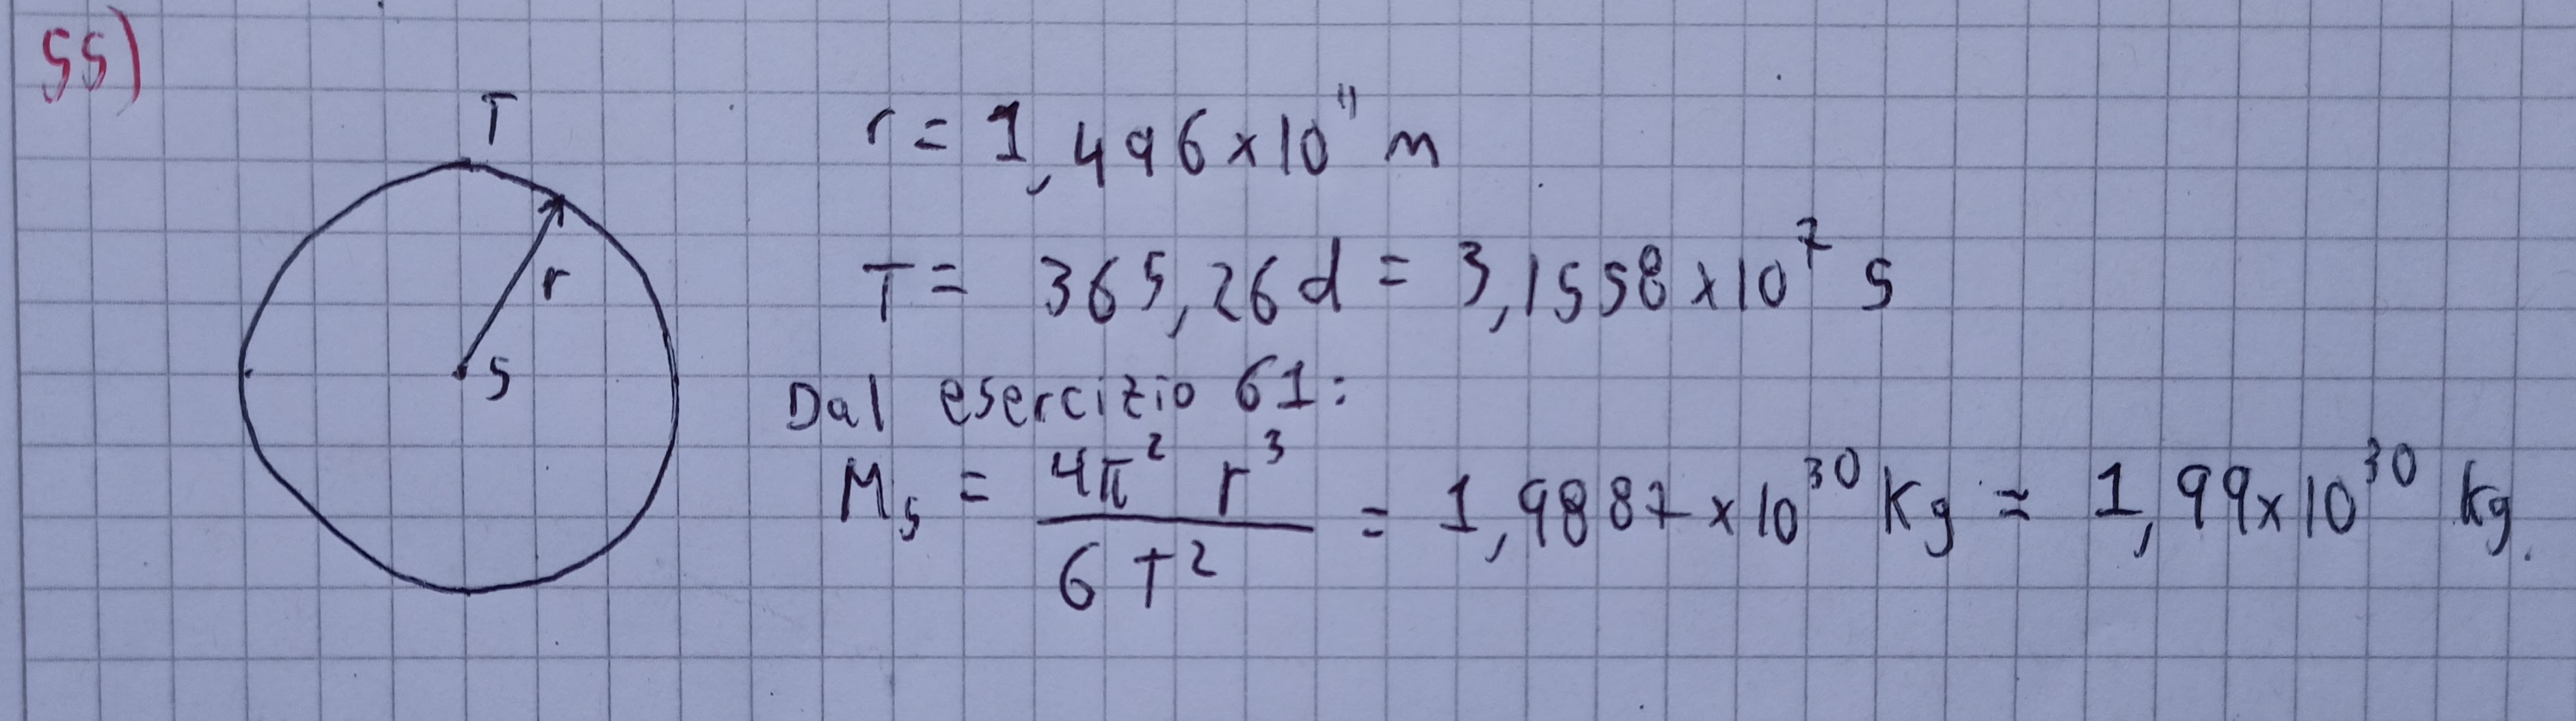 55)
T
r = 1,496×10¹¹ m
r
T = 365,26 d = 3,1558×10⁷ s
S
Dal esercizio 61:
Mₛ = 4π² r³ / G T² = 1,9887×10³⁰ Kg ≈ 1,99×10³⁰ Kg.